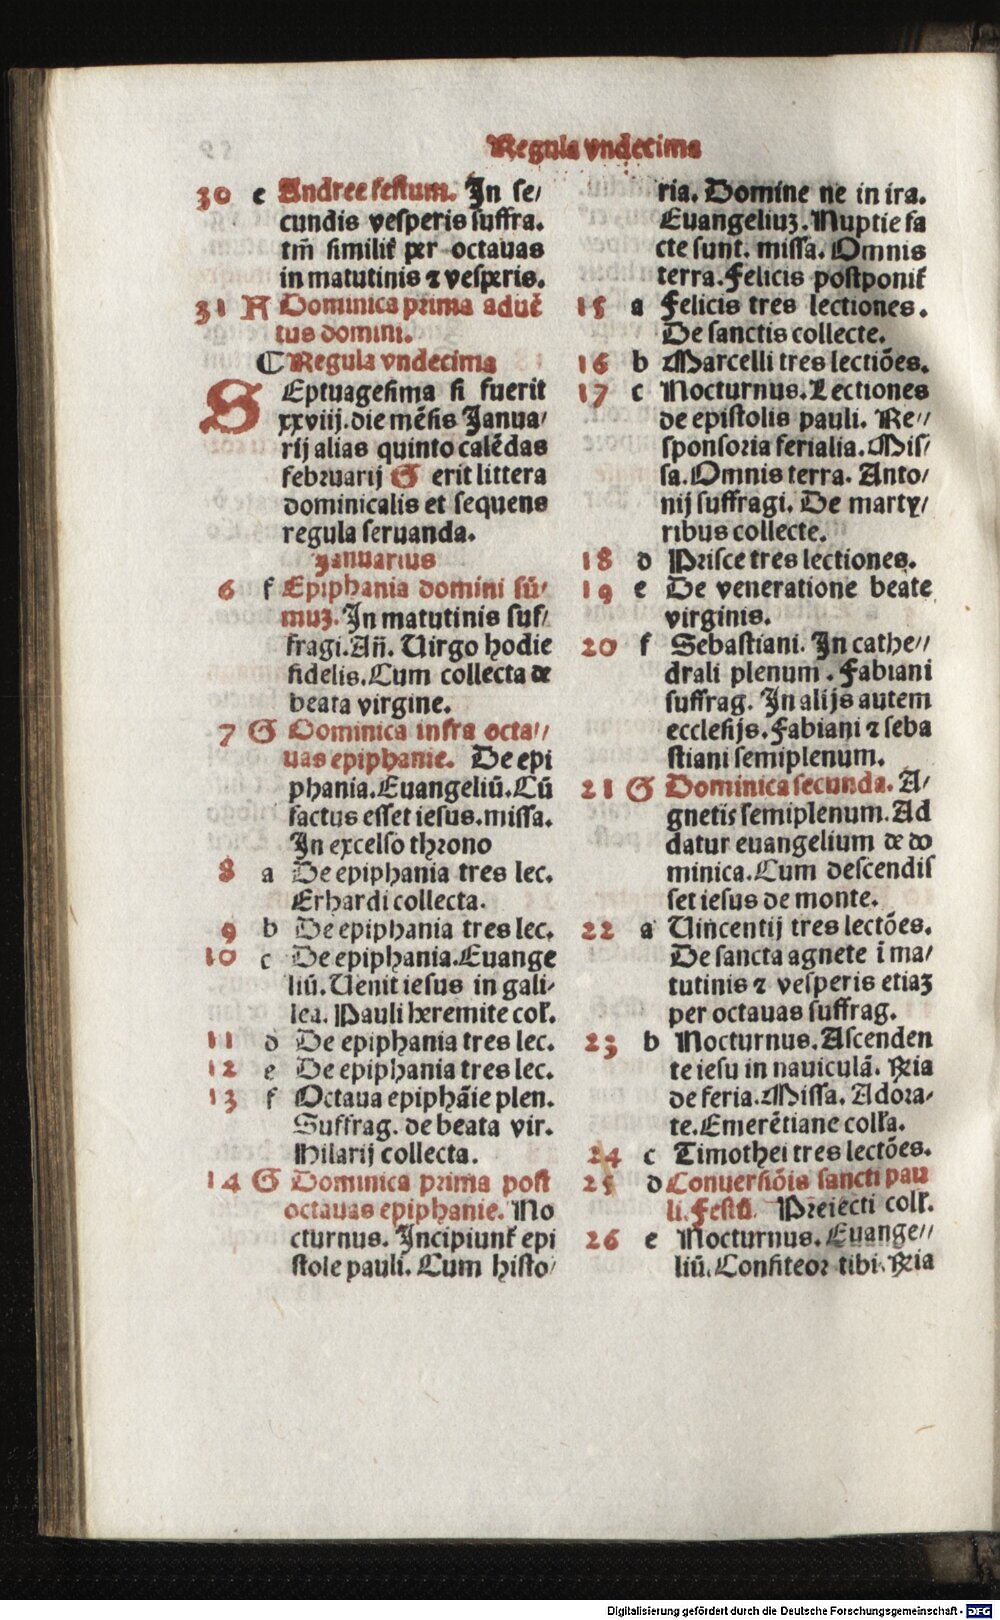 Regula vndecima
30 e Andree festum. In se/
cundis vesperis suffra.
tm̄ similiť per octauas
in matutinis ⁊ vesperis.
31 A Dominica prima aduē
tus domini.
¶ Regula vndecima
SEptuagesima si fuerit
xxviij. die mēsis Janua/
rij alias quinto calēdas
februarij G erit littera
dominicalis et sequens
regula seruanda.
Januarius
6 f Epiphania domini sū/
muꝫ. In matutinis suf/
fragi. Añ. Uirgo hodie
fidelis. Cum collecta de
beata virgine.
7 G Dominica infra octa//
uas epiphanie. De epi
phania. Euangeliū. Cū
factus esset iesus. missa.
In excelso throno
8 a De epiphania tres lec.
Erhardi collecta.
9 b De epiphania tres lec.
10 c De epiphania. Euange
liū. Uenit iesus in gali/
lea. Pauli heremite coł.
11 d De epiphania tres lec.
12 e De epiphania tres lec.
13 f Octaua epiphāie plen.
Suffrag. de beata vir.
Hilarij collecta.
14 G Dominica prima post
octauas epiphanie. No
cturnus. Incipiunť epi
stole pauli. Cum histo/
ria. Domine ne in ira.
Euangeliuꝫ. Nuptie fa
cte sunt. missa. Omnis
terra. Felicis postponiť
15 a Felicis tres lectiones.
De sanctis collecte.
16 b Marcelli tres lectiōes.
17 c Nocturnus. Lectiones
de epistolis pauli. Re//
sponsoria ferialia. Mis/
sa. Omnis terra. Anto/
nij suffragi. De marty/
ribus collecte.
18 d Prisce tres lectiones.
19 e De veneratione beate
virginis.
20 f Sebastiani. In cathe//
drali plenum. Fabiani
suffrag. In alijs autem
ecclesijs. Fabiani ⁊ seba
stiani semiplenum.
21 G Dominica secunda. A/
gnetis semiplenum. Ad
datur euangelium de do
minica. Cum descendis
set iesus de monte.
22 a Uincentij tres lectōes.
De sancta agnete ī ma/
tutinis ⁊ vesperis etiaꝫ
per octauas suffrag.
23 b Nocturnus. Ascenden
te iesu in nauiculā. R̃ia
de feria. Missa. Adora/
te. Emerētiane colła.
24 c Timothei tres lectōes.
25 d Conuersiōis sancti pau
li. Festū. Preiecti coll̃.
26 e Nocturnus. Euange//
liū. Confiteor tibi. R̃ia
Digitalisierung gefördert durch die Deutsche Forschungsgemeinschaft - DFG